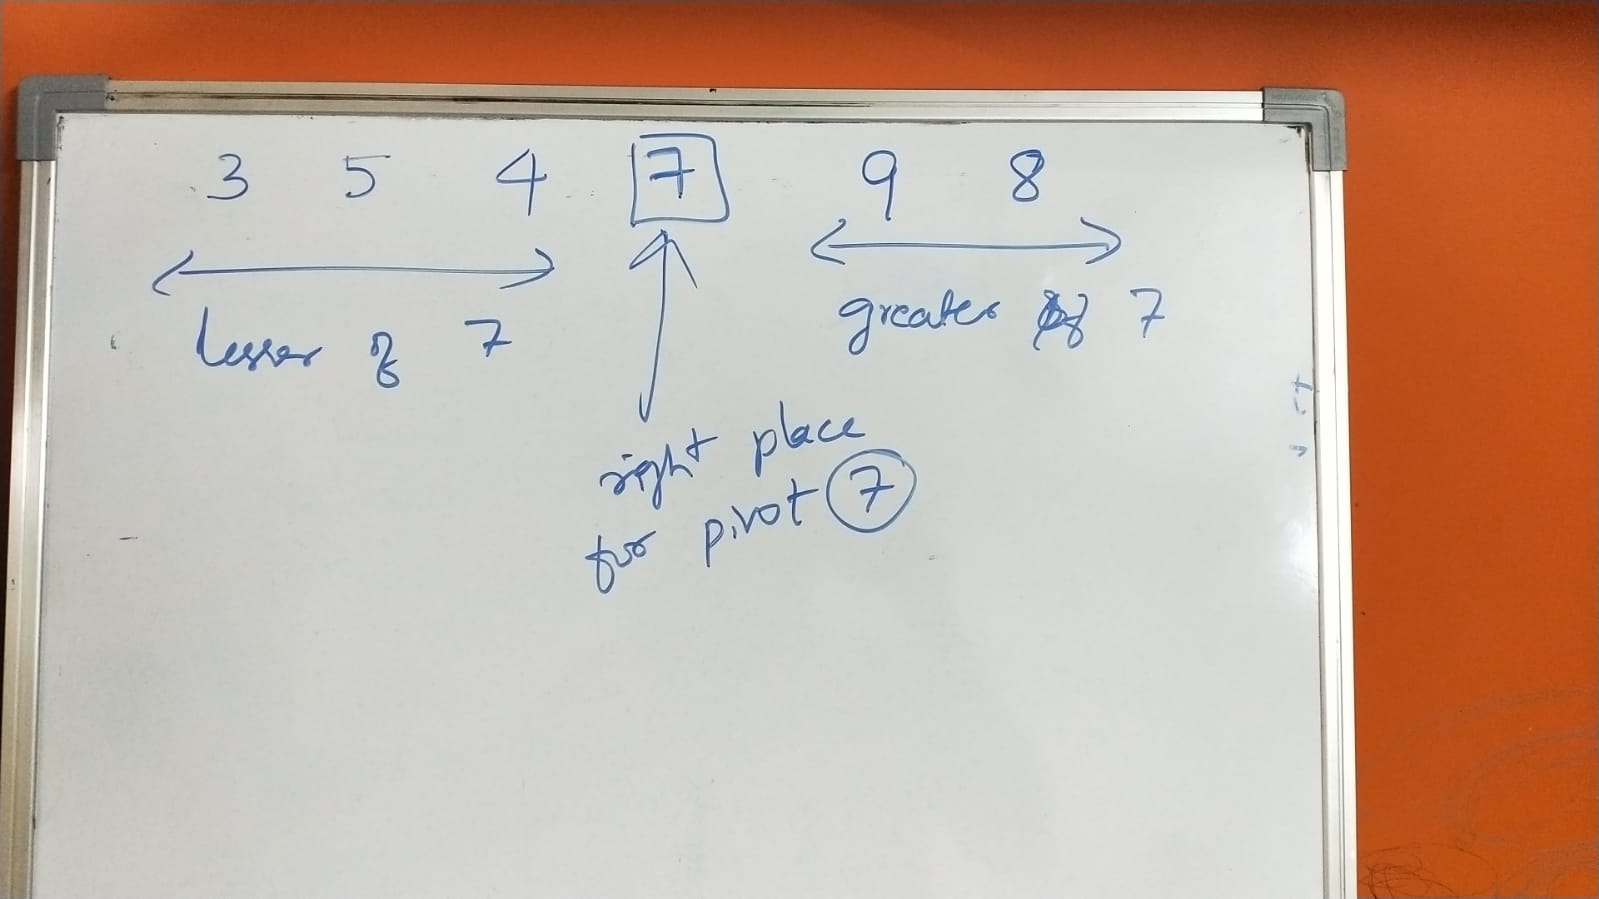 3 5 4 7 9 8
lesser of 7 greater of 7
right place
for pivot 7